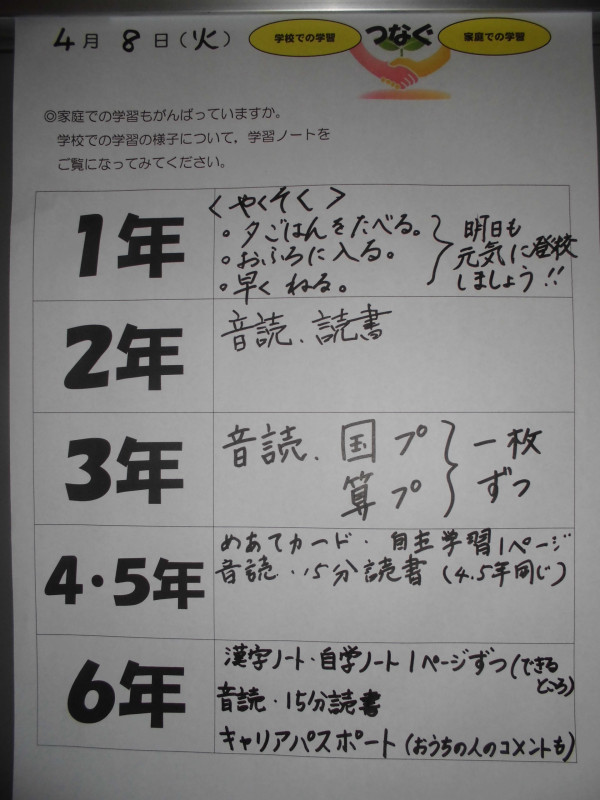 4月 8日(火)
学校での学習
つなぐ
家庭での学習
◎家庭での学習もがんばっていますか。
学校での学習の様子について，学習ノートを
ご覧になってみてください。
1年
<やくそく>
・夕ごはんをたべる。
・おふろに入る。
・早くねる。
明日も
元気に登校
しましょう!!
2年
音読、読書
3年
音読、国プ
算プ
一枚
ずつ
4・5年
めあてカード・自主学習1ページ
音読・15分読書(4.5年同じ)
6年
漢字ノート・自学ノート1ページずつ(できる
ところ)
音読・15分読書
キャリアパスポート(おうちの人のコメントも)